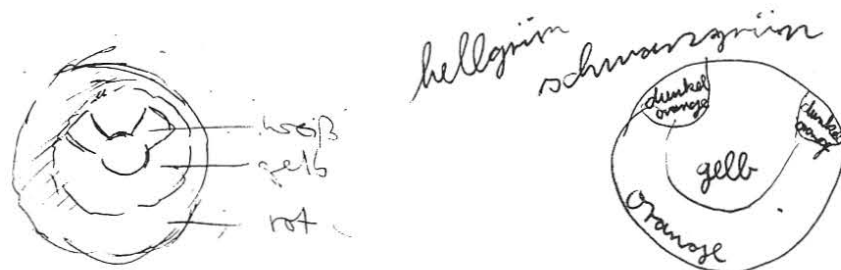 weiß
gelb
rot
hellgrün
schwarzgrün
dunkel
orange
dunkel
orange
gelb
orange